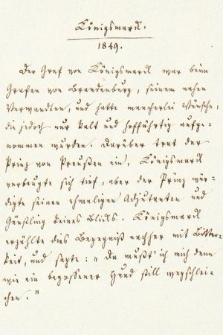 Königsmarck.
1849.
Der Graf von Königsmarck war beim
Grafen von Brandenburg, seinem nahen
Verwandten, und hatte mancherlei Wünsche,
die jedoch nur kalt und hoffärtig aufge-
nommen wurden. Darüber trat der
Prinz von Preußen ein, Königsmarck
verbeugte sich tief, aber der Prinz wür-
digte seinen ehemaligen Adjutanten und
Günstling keines Blicks. Königsmarck
erzählte das Begegniß nachher mit Bitter-
keit, und sagte: „Da mußt' ich mich denn
wie ein begossener Hund still wegschlei-
chen."